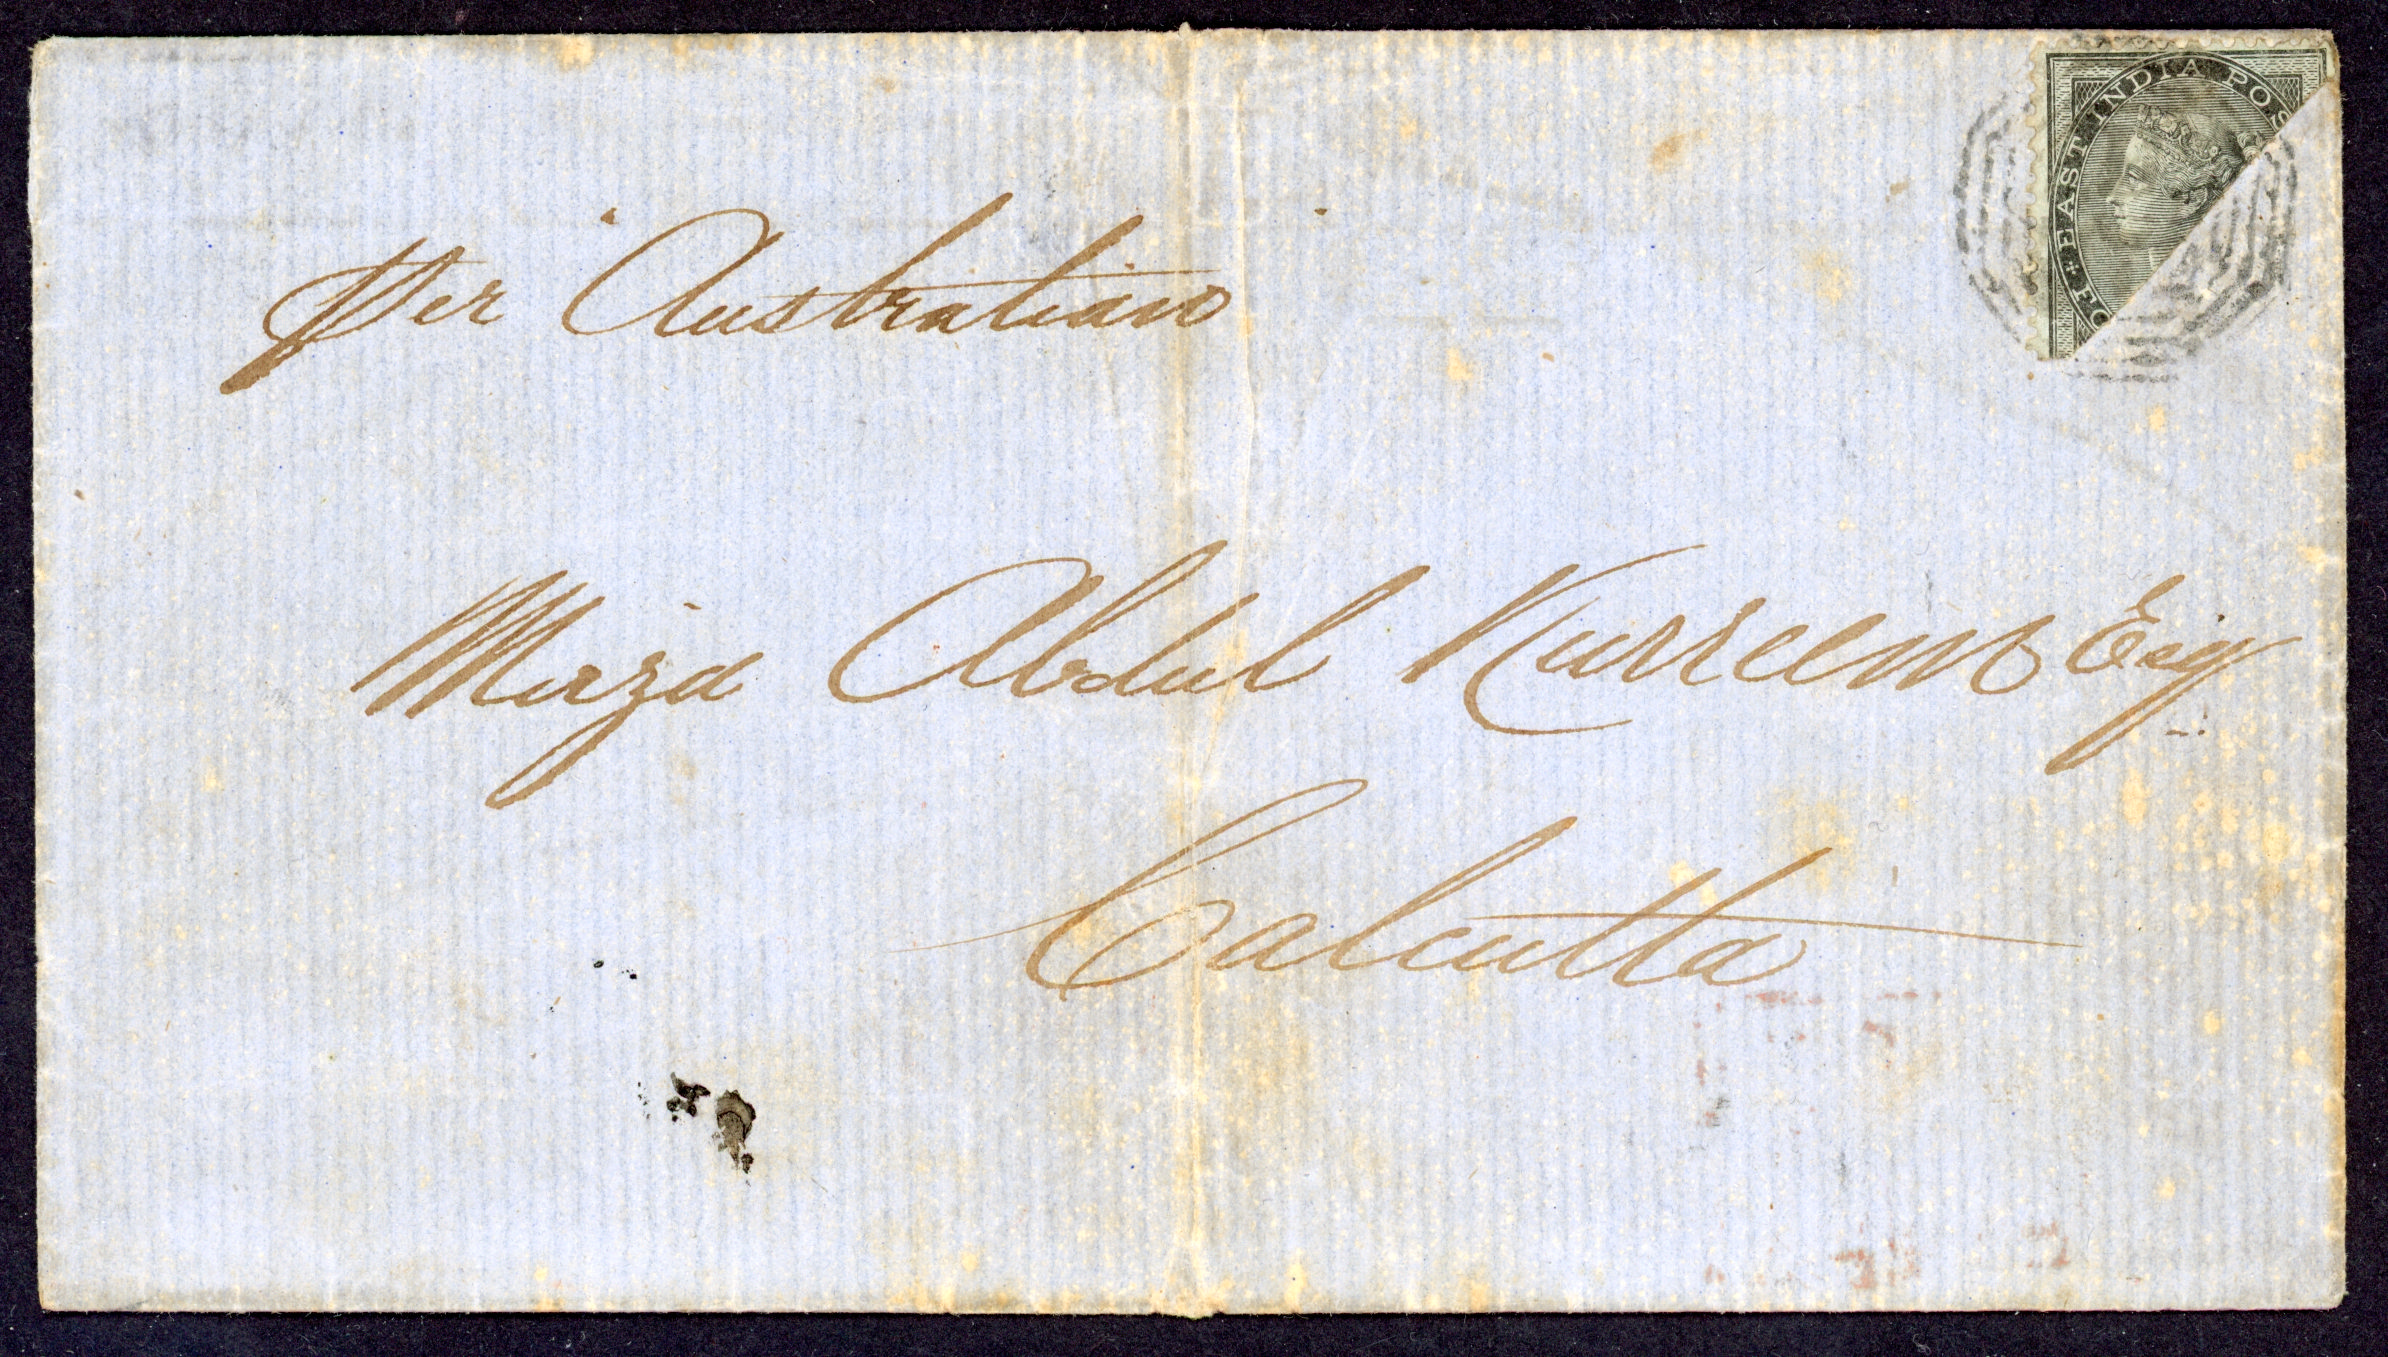 EAST INDIA POS
+ FO
per "Australian"
Mirza Abdul Kurreem Esq
Calcutta